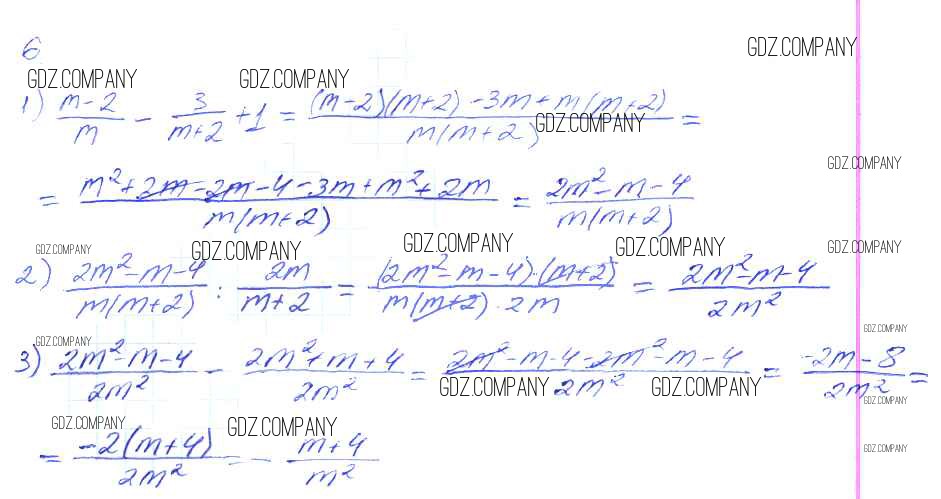 6
GDZ.COMPANY
GDZ.COMPANY GDZ.COMPANY
1) (m-2)/m - 3/(m+2) + 1 = ((m-2)(m+2) - 3m + m(m+2))/(m(m+2)) =
GDZ.COMPANY
GDZ.COMPANY
= (m² + 2m - 2m - 4 - 3m + m² + 2m)/(m(m+2)) = (2m² - m - 4)/(m(m+2))
GDZ.COMPANY GDZ.COMPANY GDZ.COMPANY GDZ.COMPANY GDZ.COMPANY
2) (2m² - m - 4)/(m(m+2)) : 2m/(m+2) = ((2m² - m - 4)·(m+2))/(m(m+2)·2m) = (2m² - m - 4)/(2m²)
GDZ.COMPANY GDZ.COMPANY
3) (2m² - m - 4)/(2m²) - (2m² + m + 4)/(2m²) = (2m² - m - 4 - 2m² - m - 4)/(2m²) = (-2m - 8)/(2m²) =
GDZ.COMPANY GDZ.COMPANY GDZ.COMPANY
GDZ.COMPANY GDZ.COMPANY GDZ.COMPANY
= (-2(m+4))/(2m²) = - (m+4)/m²